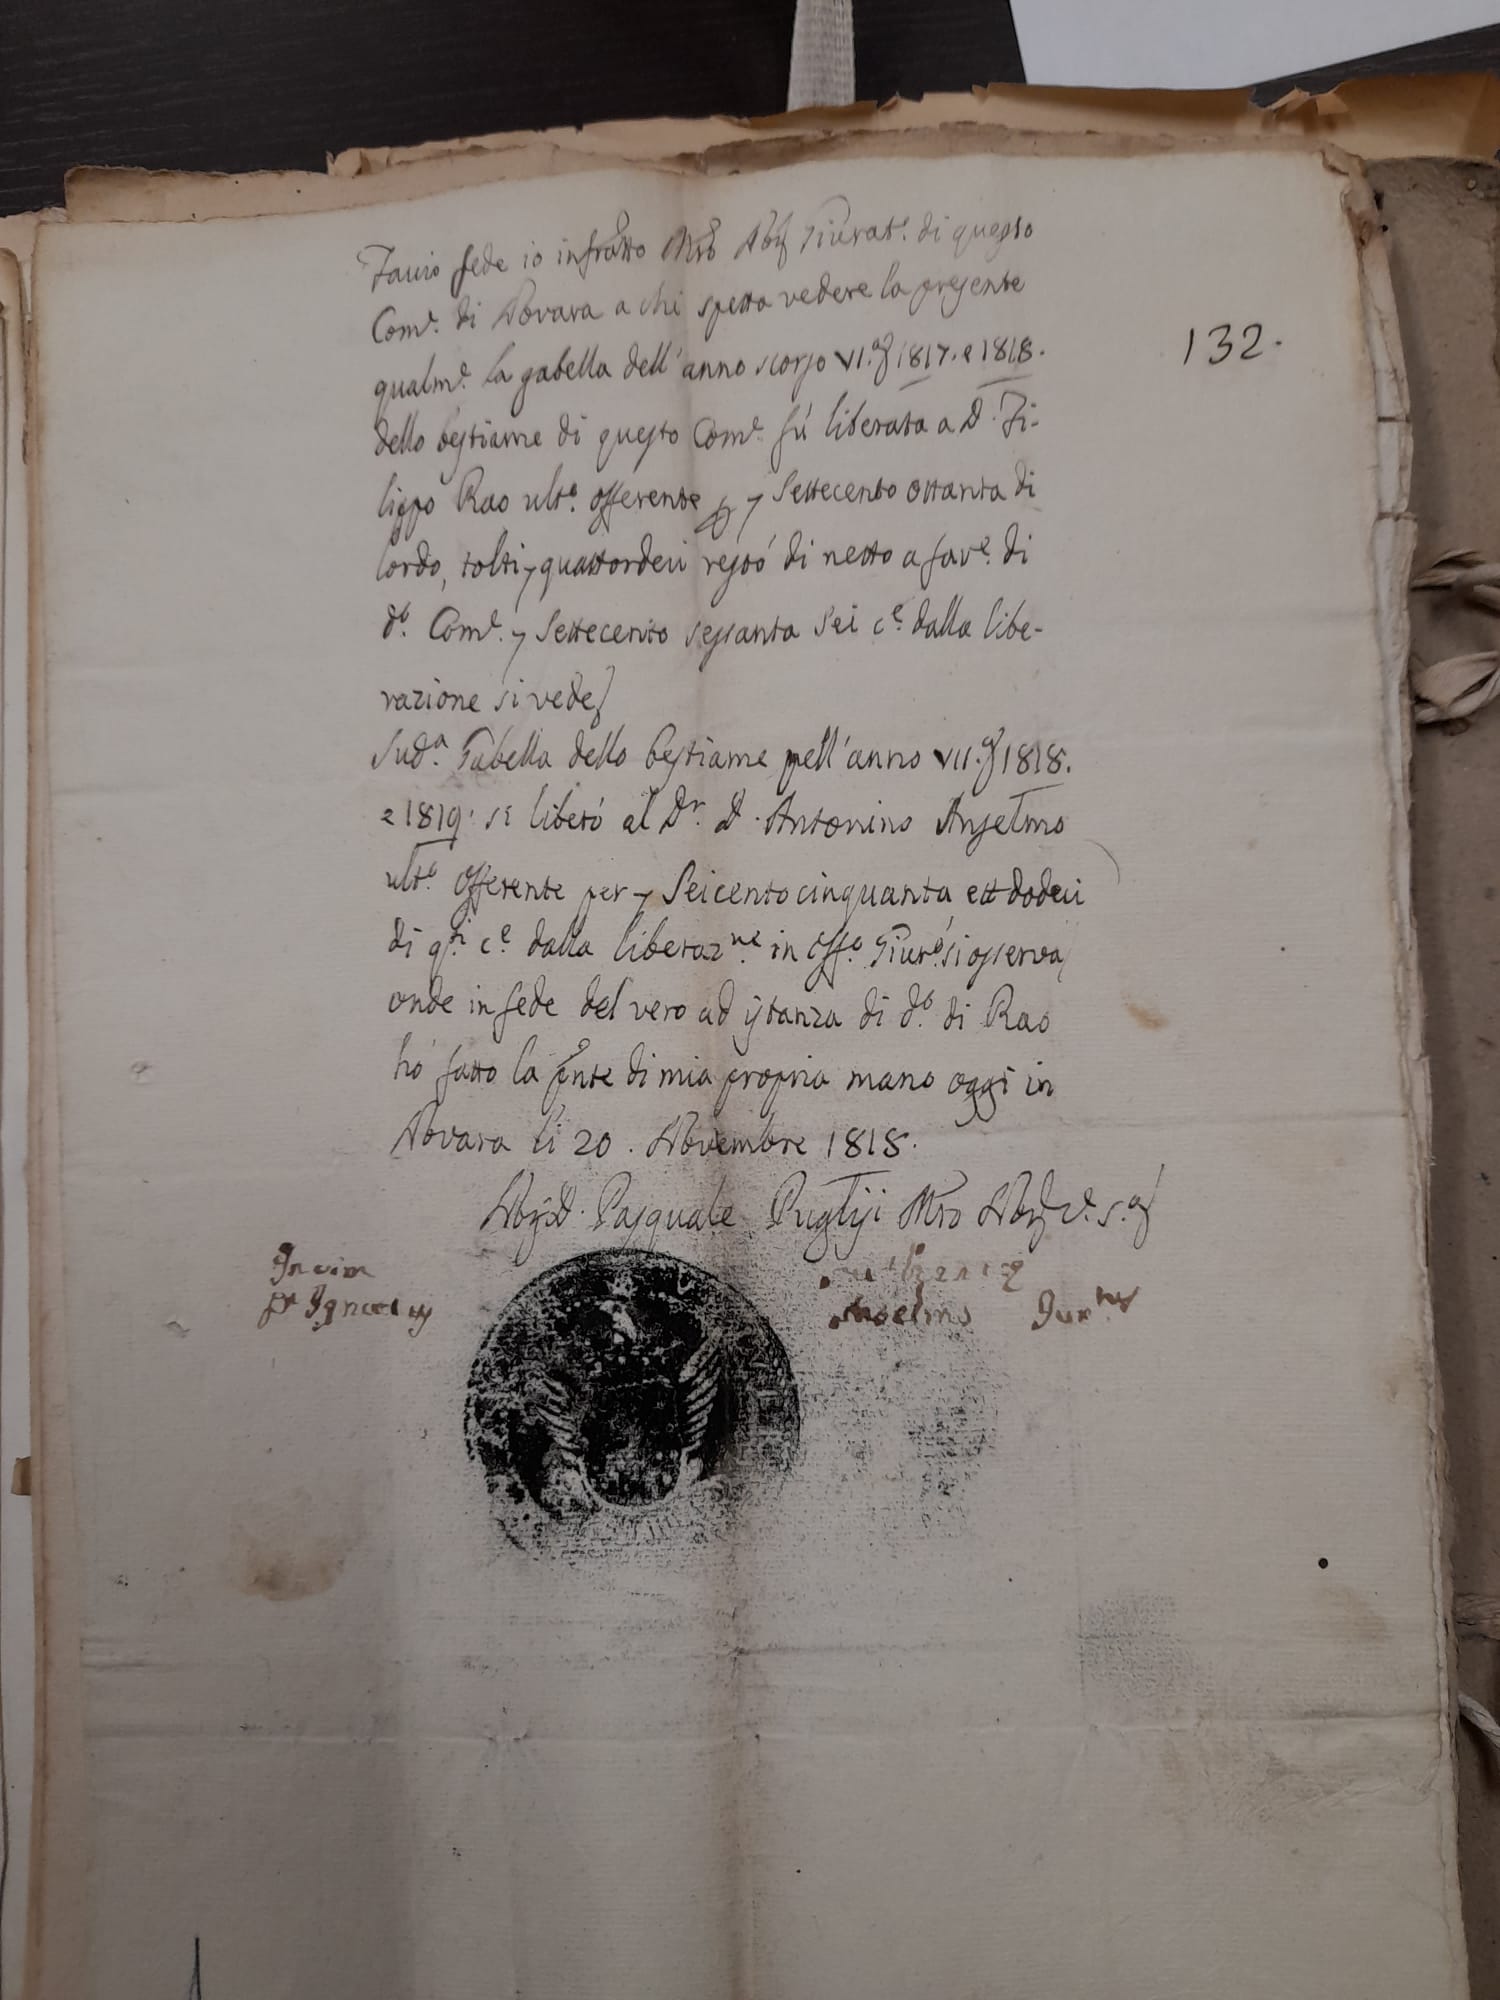 Faccio fede io infrãtto Mrõ Notꝭ Giurat.e di questo
Com.e di Novara a chi spetta vedere la presente
132.
qualm.e la gabella dell'anno scorso VI. 1817. e 1818.
dello bestiame di questo Com.e fù liberata a D. Fi-
lippo Rao ult.o offerente Settecento ottanta di
lordo, tolti quattordeci restò di netto a fav.e di
d.o Com.e Settecento sessanta sei c.e dalla libe-
razione si vede
Sud.a Gabella dello bestiame pell'anno VII. 1818.
e 1819. si liberò al Dr. D. Antonino Anselmo
ult.o offerente per Seicento cinquanta ett dodeci
di q.ti c.e dalla liberaz.ne in Off.o Giur.e si osserva
onde in fede del vero ad istanza di d.o di Rao
hò fatto la pñte di mia propria mano oggi in
Novara li 20. Novembre 1818.
D. Pasquale Puglisi Mro
Anselmo